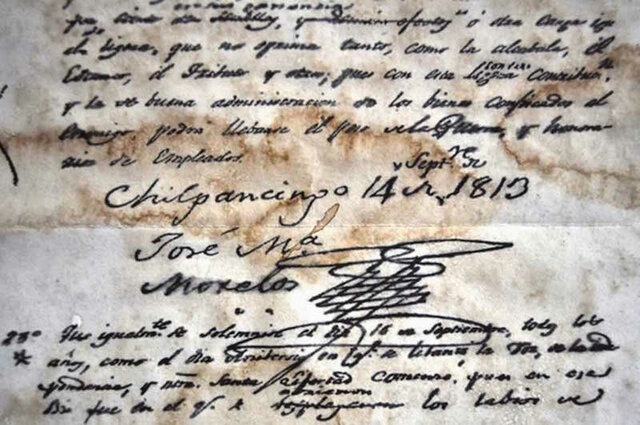 ó otra carga
ligera, que no oprima tanto, como la alcabala, el
Estanco, el Tributo y otros; pues con esta ligera contribun.
y la buena administracion de los bienes confiscados al
Enemigo podra llebarse el peso de la Guerra, y honora-
rios de Empleados.
Sept.re de
Chilpancingo 14 de 1813
José M.a
Morelos
23.o Que igualm.te se solemnise el dia 16 de Septiembre, todos los
años, como el dia Anibersario en q.e se lebanto la Voz de la Inde-
pendencia, y ntra. Santa Libertad comenzó, pues en ese
Dia fue en el q.e se los labios de